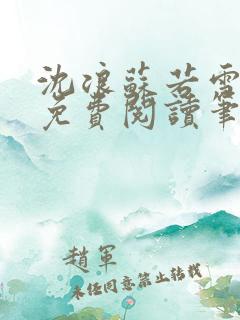 沈浪蘇若雪
免費閱讀筆
趙軍
未經同意禁止轉載